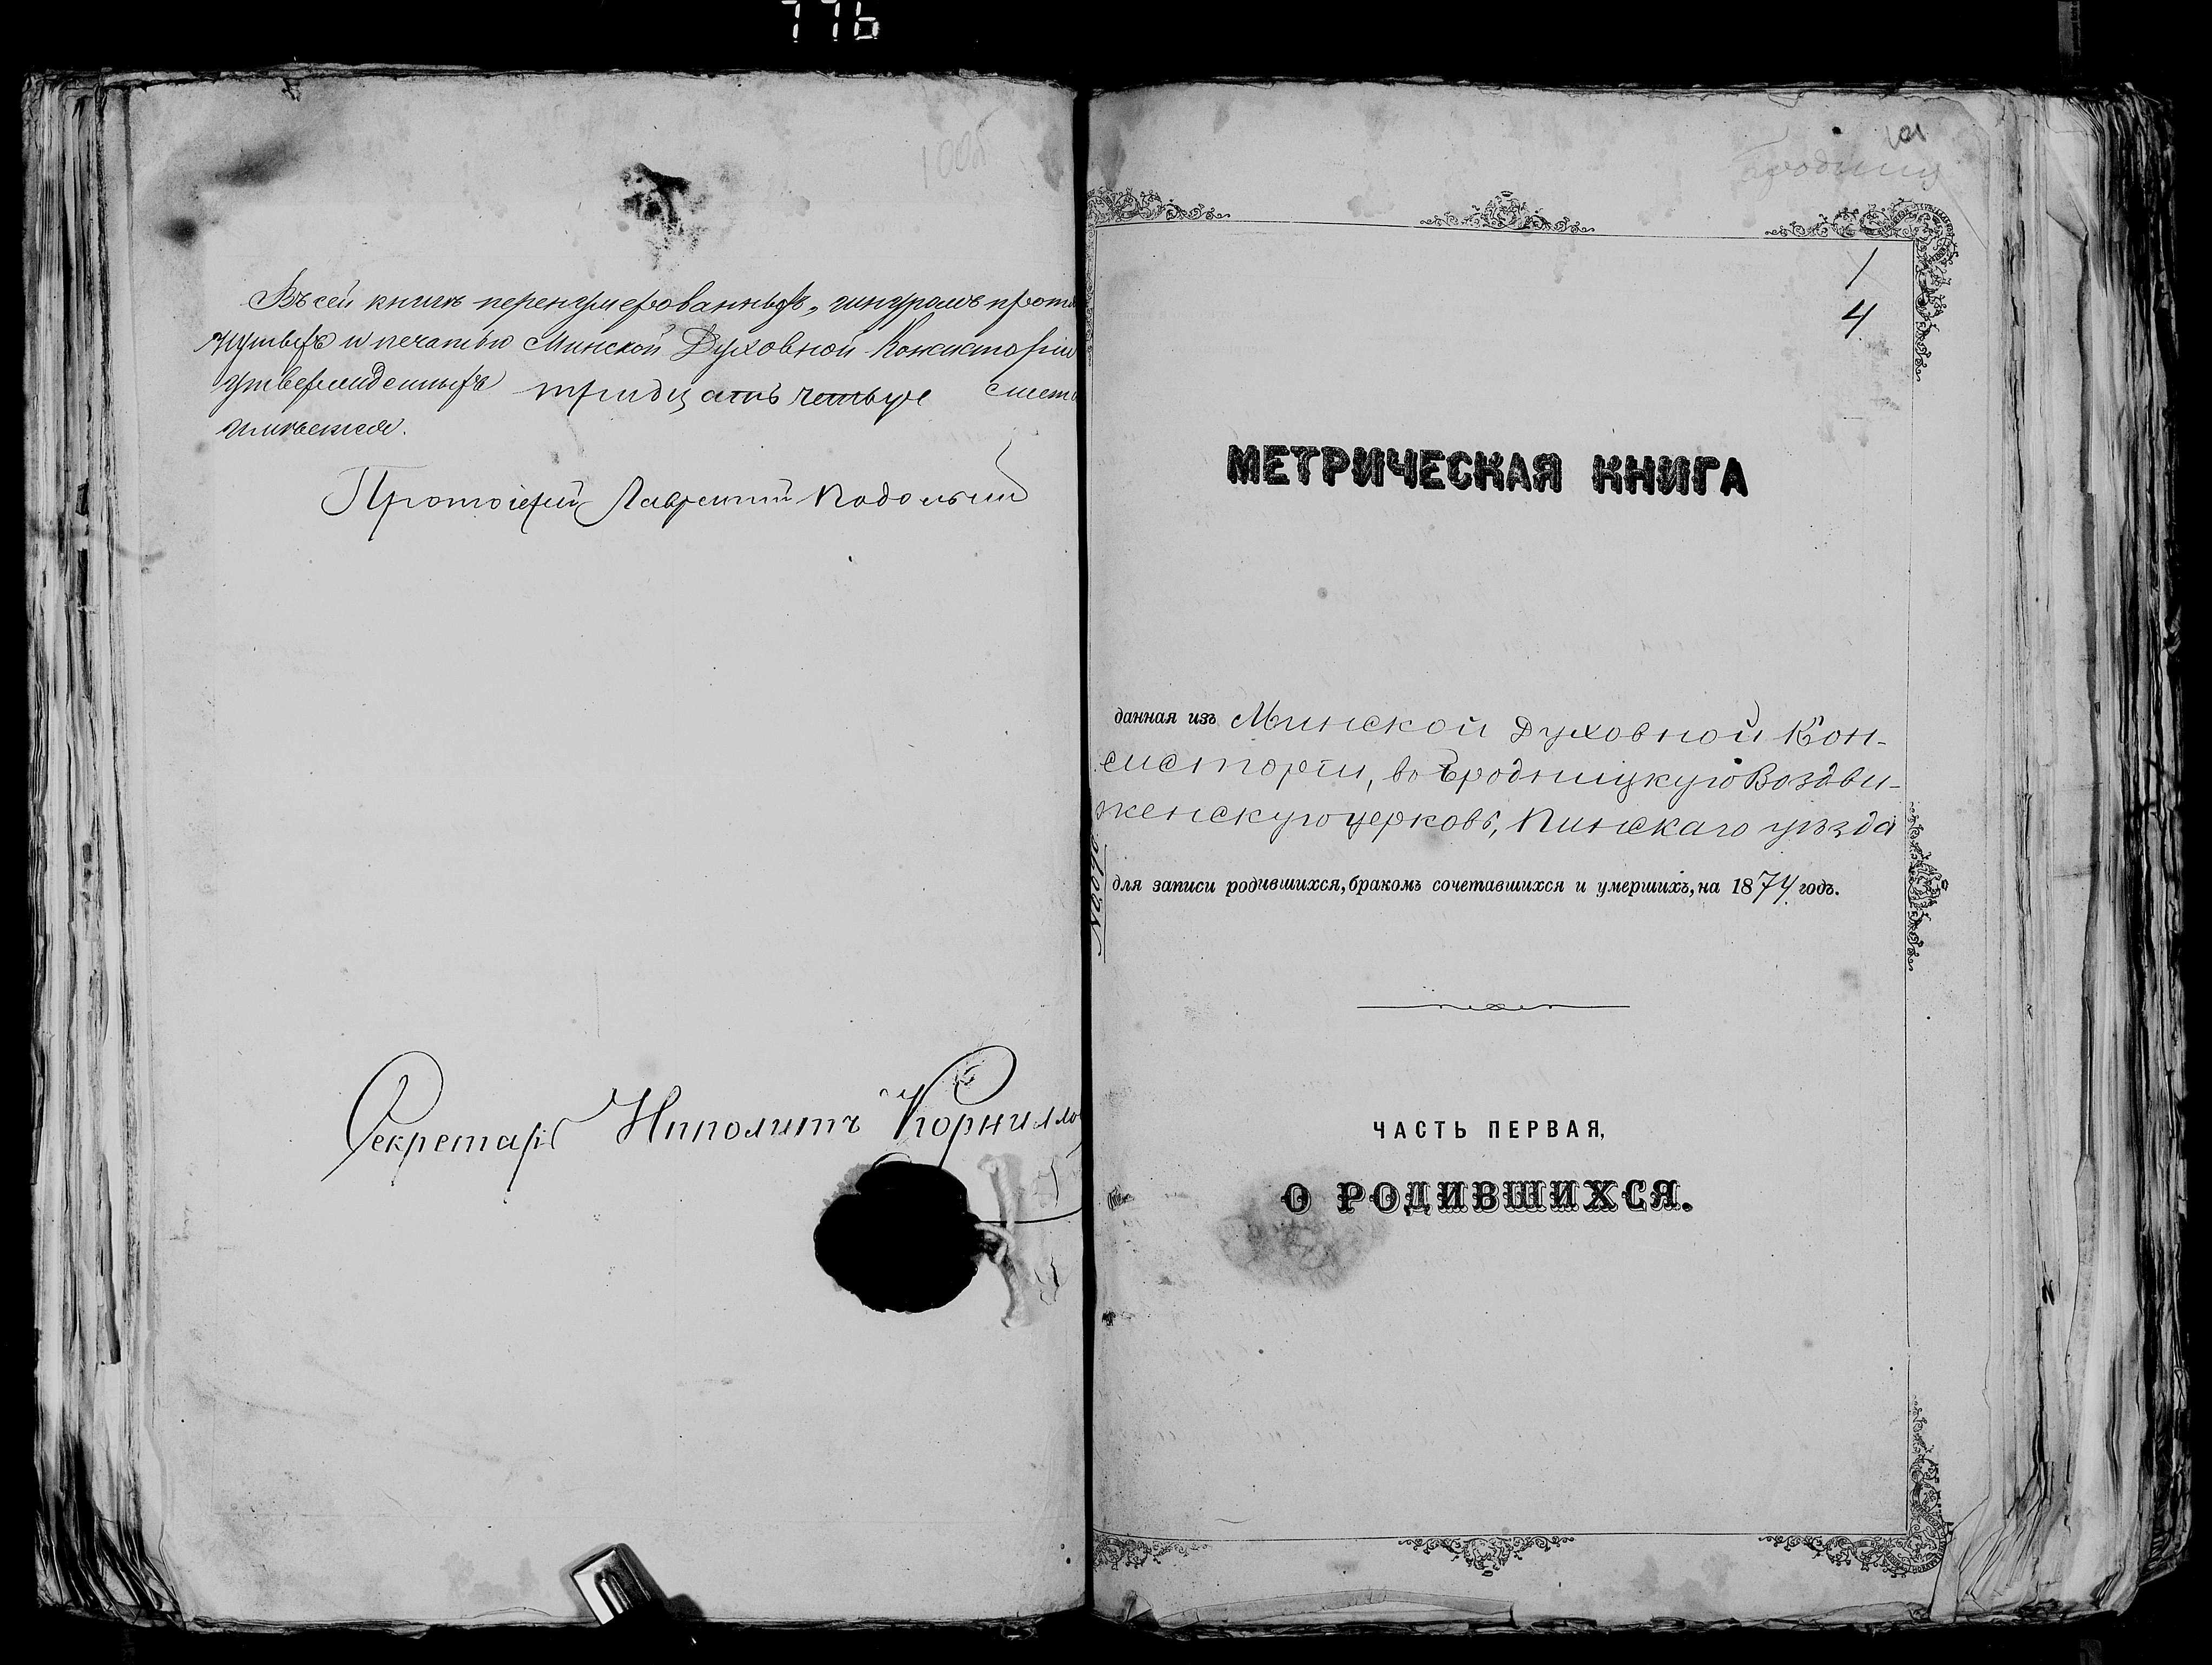 776
100об
Въ сей книгѣ перенумерованныхъ, шнуромъ протя
нутыхъ и печатью Минской Духовной Консисторіи
утвержденныхъ тридцать четыре
имѣется.
Протоіерей Лаврентій Подольскій
Секретарь Ипполитъ Корнилло
101
Бродница
1
4
МЕТРИЧЕСКАЯ КНИГА
данная изъ Минской Духовной Кон-
систоріи, въ Бродницкую Воздви-
женскую церковь, Пинскаго уѣзда
для записи родившихся, бракомъ сочетавшихся и умершихъ, на 1874 годъ.
ЧАСТЬ ПЕРВАЯ,
О РОДИВШИХСЯ.